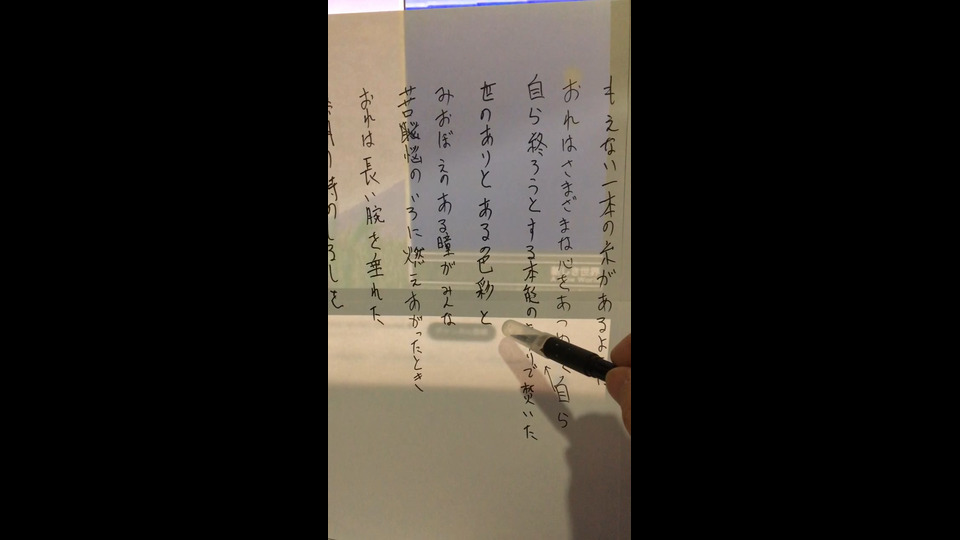 もえない一本の糸があるよ
おれはさまざまな心をあつめ 自ら
自ら終ろうとする本能の りで焚いた
世のありとあるの色彩と
みおぼえのあるの瞳がみんな
苦悩のいろに燃えあがったとき
おれは長い腕を垂れた
時の